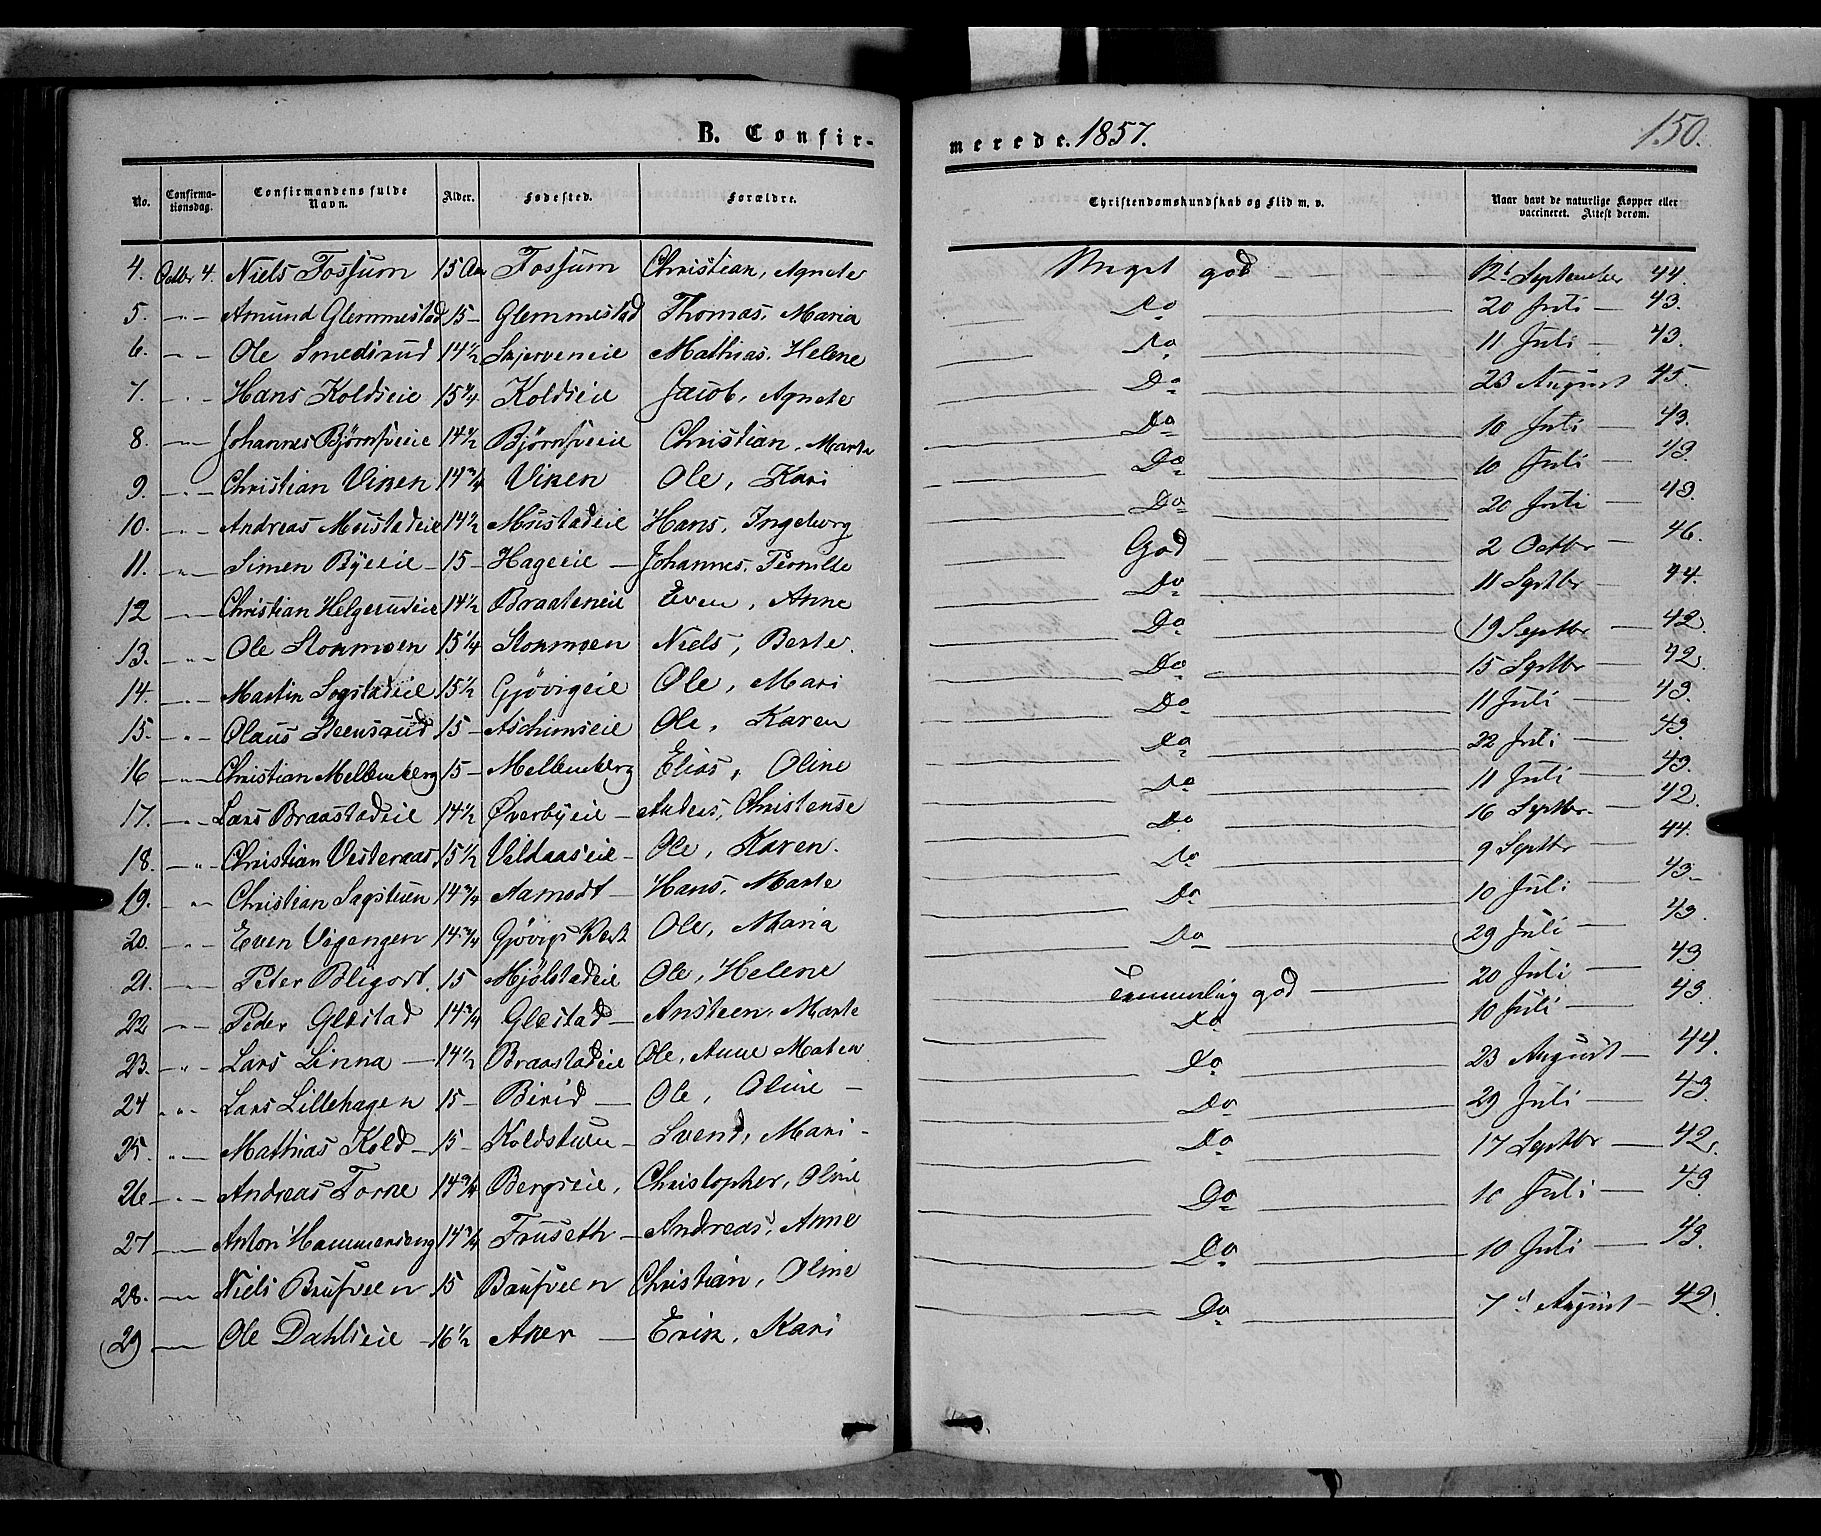 B. Confir-
merede. 1857.
150.
No. Confirma-tionsdag. Confirmandens fulde Navn. Alder. Fødested. Forældre. Christendomskundskab og Flid m. v. Naar havt de naturlige Kopper eller vaccineret. Attest derom.
4. Octbr 4. Niels Fossum 15 Aar Fossum Christian, Agnete Meget god 12t September 44.
5. -"- Amund Glemmestad 15 - Glemmestad Thomas, Maria Do 20 Juli 43.
6. -"- Ole Smedsrud 14½ Skjerveneie Mathias, Helene Do 11 Juli 43.
7. -"- Hans Koldseie 15¼ Koldseie Jacob, Agnete Do 23 August 45.
8. -"- Johannes Bjørnsveeie 14½ Bjørnsveeie Christian, Marte Do 10 Juli 43.
9. -"- Christian Viken 14¾ Viken Ole, Kari Do 10 Juli 43.
10. -"- Andreas Mustadeie 14½ Mustadeie Hans, Ingeborg Do 20 Juli 43.
11. -"- Simen Byeeie 15 - Hageeie Johannes, Pernille God 2 Octbr 46.
12 -"- Christian Helgerudeie 14½ Braateneie Even, Anne Do 11 Septbr 44.
13. -"- Ole Stormoen 15¼ Stormoen Niels, Berte. Do 19 Septbr 42.
14. -"- Martin Sogstadeie 15½ Gjøvigeie Ole, Mari Do 15 Septbr 42.
15. -"- Olaus Steensrud 15 - Aschimseie Ole, Karen Do 11 Juli 43.
16 -"- Christian Mellemberg 15 - Mellemberg Elias, Oline Do 22 Juli 43.
17. -"- Lars Braastadeie 14½ Øverbyeie Anders, Christense Do 11 Juli 43.
18. -"- Christian Vesteraas 15½ Vildaaseie Ole, Karen. Do 16 Septbr. 42.
19. -"- Christian Sagstuen 14¾ Aamodt Hans, Marte Do 9 Septbr 44.
20. -"- Even Vigengen 14¾ Gjøvigs Værk Ole, Maria Do 10 Juli 43
21. -"- Peter Bligort. 15 Mjølstadeie Ole, Helene Do 29 Juli 43.
22. -"- Peder Glæstad 14¾ Glæstad Ansteen, Marte Temmelig god 20 Juli 43
23. -"- Lars Linna 14½ Braastadeie Ole, Anne Maten Do 10 Juli 43.
24 -"- Lars Lillehagen 15 - Birid Ole, Oline Do 23 August 44.
25. -"- Mathias Kold 15 - Koldstuen Svend, Mari Do 29 Juli 43.
26 -"- Andreas Torne 14¾ Bergseie, Christopher, Oline Do 17 Septbr 42.
27 -"- Anton Hammerseng 14¾ Fruseth Andreas, Anne Do 10 Juli 43
28. -"- Niels Brufveen 15 Baufveen Christian, Oline Do 10 Juli 43.
29 -"- Ole Dahlseie 16½ Aker Erik, Kari Do 7d August 42.